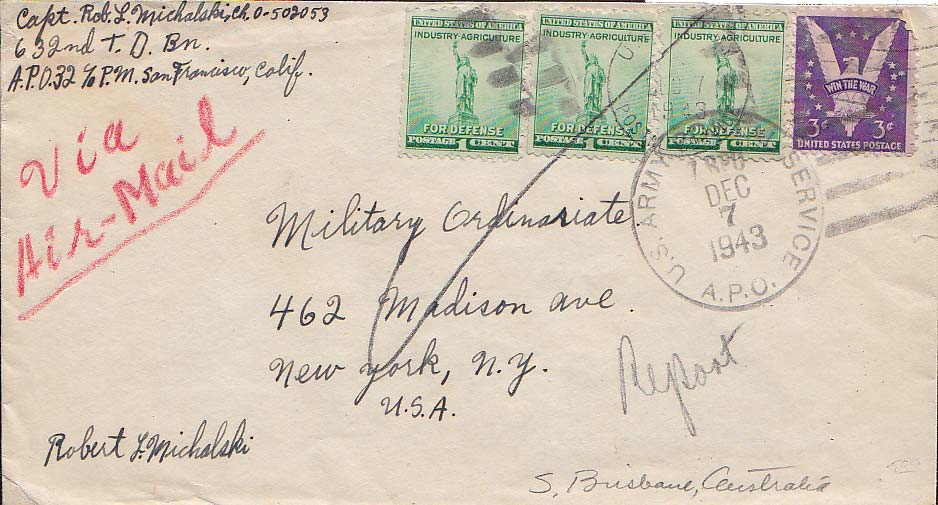 Capt. Rob. L. Michalski, Ch. O-502053
632nd T. D. Bn.
A.P.O. 32 c/o P.M. San Francisco, Calif.
Via
Air-Mail
UNITED STATES OF AMERICA
INDUSTRY·AGRICULTURE
FOR DEFENSE
POSTAGE 1 CENT
UNITED STATES OF AMERICA
INDUSTRY·AGRICULTURE
FOR DEFENSE
POSTAGE 1 CENT
UNITED STATES OF AMERICA
INDUSTRY·AGRICULTURE
FOR DEFENSE
POSTAGE 1 CENT
WIN THE WAR
3¢ 3¢
UNITED STATES POSTAGE
U.S. ARMY SERVICE
DEC
7
1943
A.P.O.
Military Ordinariate
462 Madison ave.
New york, N.Y.
U.S.A.
Report
Robert L. Michalski
S. Brisbane, Australia